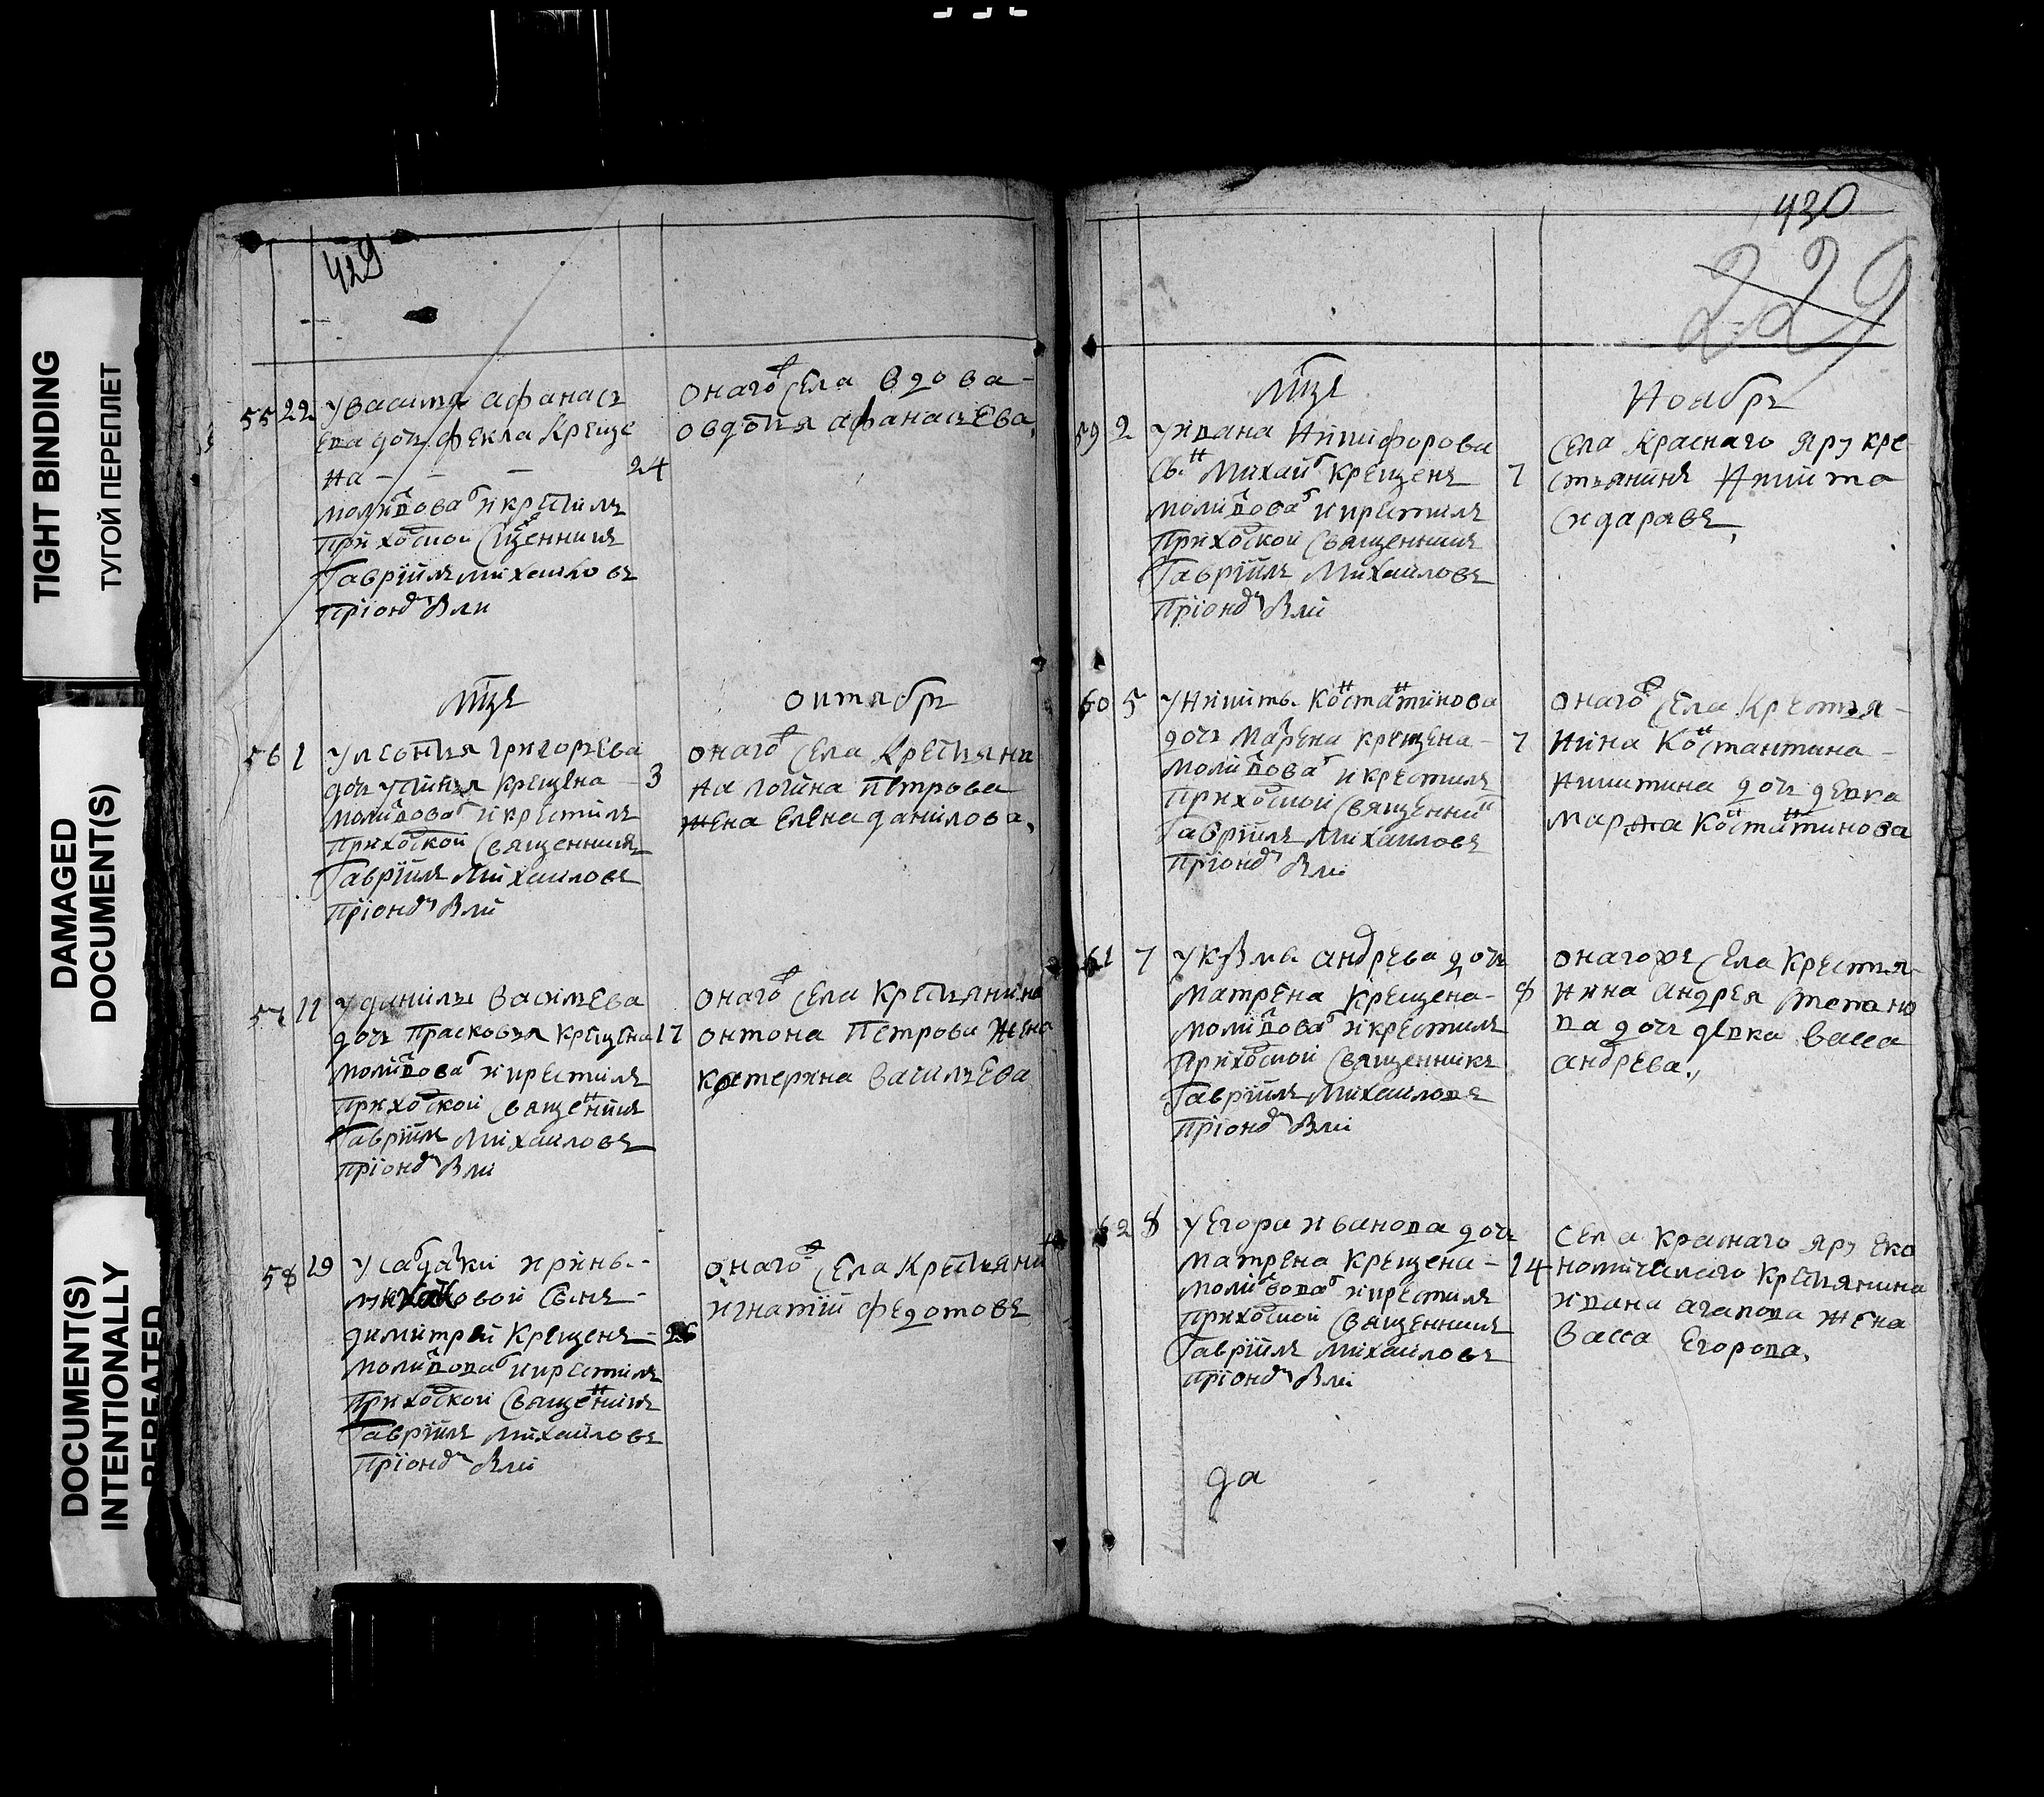 TIGHT BINDING
ТУГОЙ ПЕРЕПЛЕТ
DAMAGED
DOCUMENT(S)
DOCUMENT(S)
INTENTIONALLY
REPEATED
429
55 22 У васиља афанасъ
ева дочь фекла креще
на - - - 24
молитвовал и крестилъ
приходской сщенникъ
Гавріилъ михаиловъ
пріондъ Вли
онагож села вдова -
овдотья афанасьева,
мцъ октябръ
56 1 У леонтья григорьева
дочь устинья крещена - 3
молитвовал и крестилъ
приходской священникъ
Гавріилъ михаиловъ
пріондъ Вли
онагож села крестьяни
на логина петрова
жена елена данилова,
57 11 У данилы васильева
дочь прасковья крещена 17
молитвовал и крестилъ
приходской священникъ
Гавріилъ михаиловъ
пріондъ Вли
онагож села крестьянина
онтона петрова жена
катерина васильева
58 19 У салдатки ирины -
овой сынъ -
димитрей крещенъ - 26
молитвовал и крестилъ
приходской священникъ
Гавріилъ михаиловъ
пріондъ Вли
онагож села крестьяни
игнатій федотовъ
430
229
мцъ ноябръ
59 2 У ивана никифорова
сынъ михайл крещенъ 7
молитвовал и крестилъ
приходской священникъ
Гавріилъ михаиловъ
пріондъ Вли
села краснаго яру кре
стьянинъ никита
сидаравъ,
60 5 У никиты костантинова
дочь марена крещена - 7
молитвовал и крестилъ
приходской священник
Гавріилъ михаиловъ
пріондъ Вли
онагож села крестья -
нина костантина -
никитина дочь девка
марфа костантинова
61 7 У кузмы андрева дочь
матрена крещена - 8
молитвовал и крестилъ
приходской священникъ
Гавріилъ михаиловъ
пріондъ Вли
онагоже села крестья -
нина андрея степано
ва дочь девка васса
андрева.,
62 8 У егора иванова дочь
матрена крещена - 14
молитвовал и крестилъ
приходской священникъ
Гавріилъ михаиловъ
пріондъ Вли
села краснаго яру еко
номическаго крестьянина
ивана агапова жена
васса егорова,
да